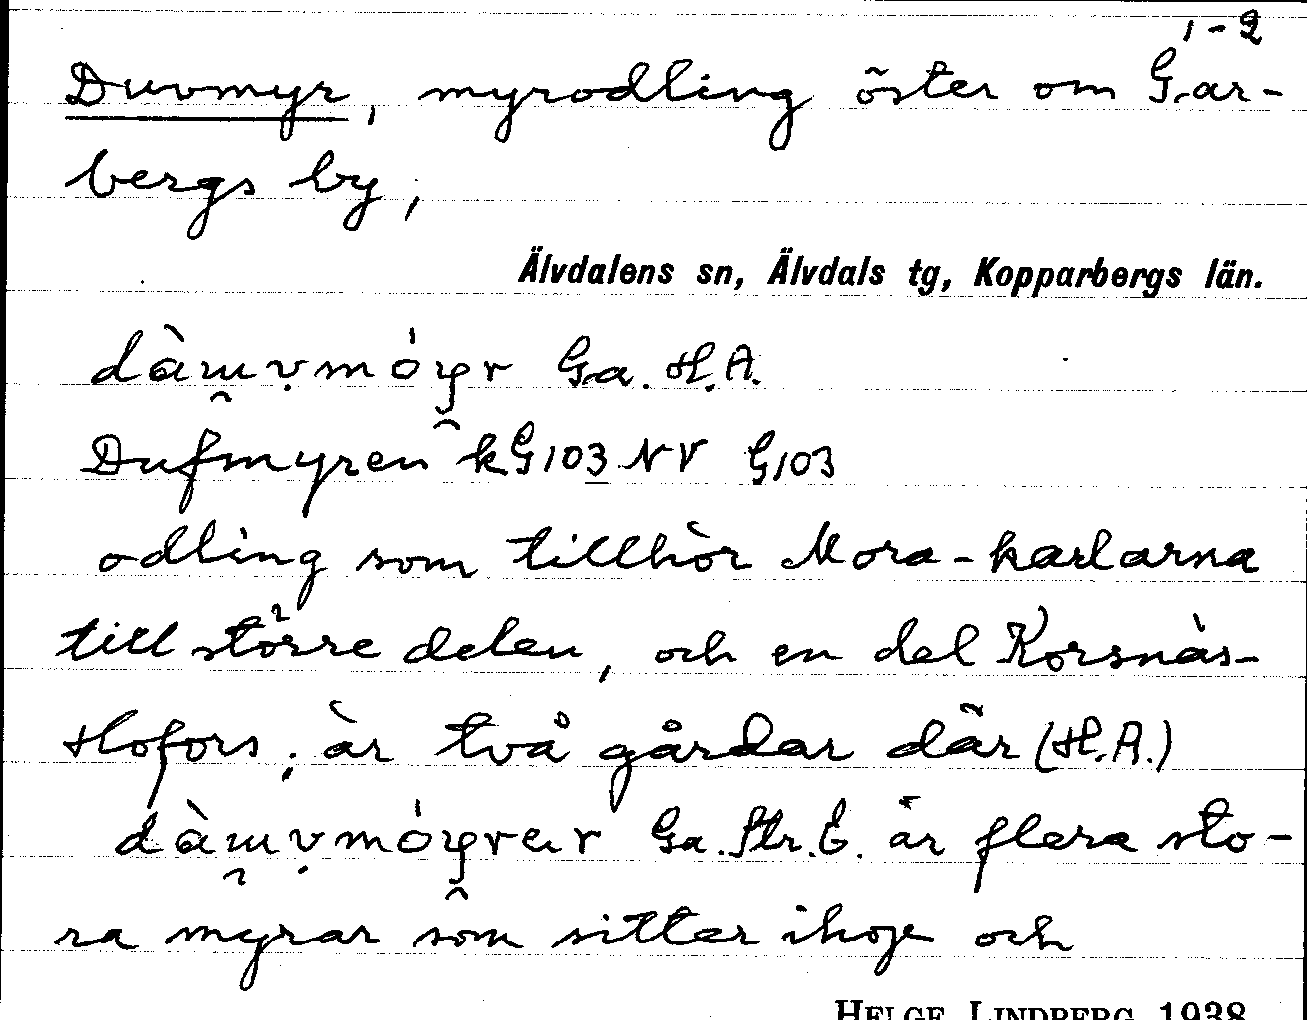 1-2
Duvmyr, myrodling öster om Gar-
bergs by,
Älvdalens sn, Älvdals tg, Kopparbergs län.
Ga. H.A.
Dufmyren kG103 NV G103
odling som tillhör Mora-karlarna
till större delen, och en del Korsnäs-
Hofors; är två gårdar där (H.A.)
Ga. Str.E. är flera sto-
ra myrar som sitter ihop och
HELGE LINDBERG 1938